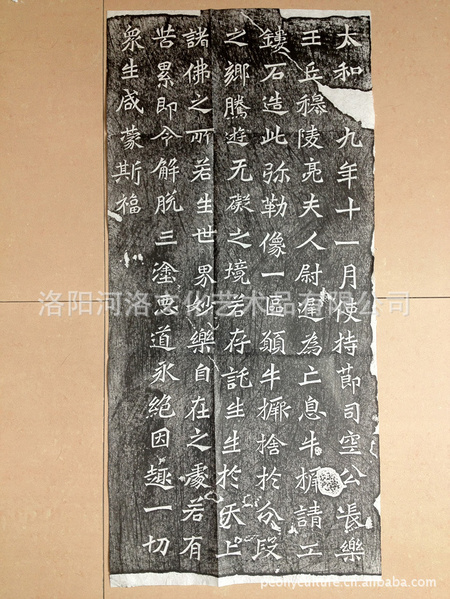 太和 九年十一月使持節司空公長樂
王丘穆陵亮夫人尉遲為亡息牛橛請工
鏤石造此弥勒像一區願牛橛捨於分段
之鄉騰遊无礙之境若存託生生於天上
諸佛之所若生世界妙樂自在之處若有
苦累即令解脱三塗惡道永絕因趣一切
眾生咸蒙斯福
洛阳河洛文化艺术品有限公司
peonyculture.cn.alibaba.com